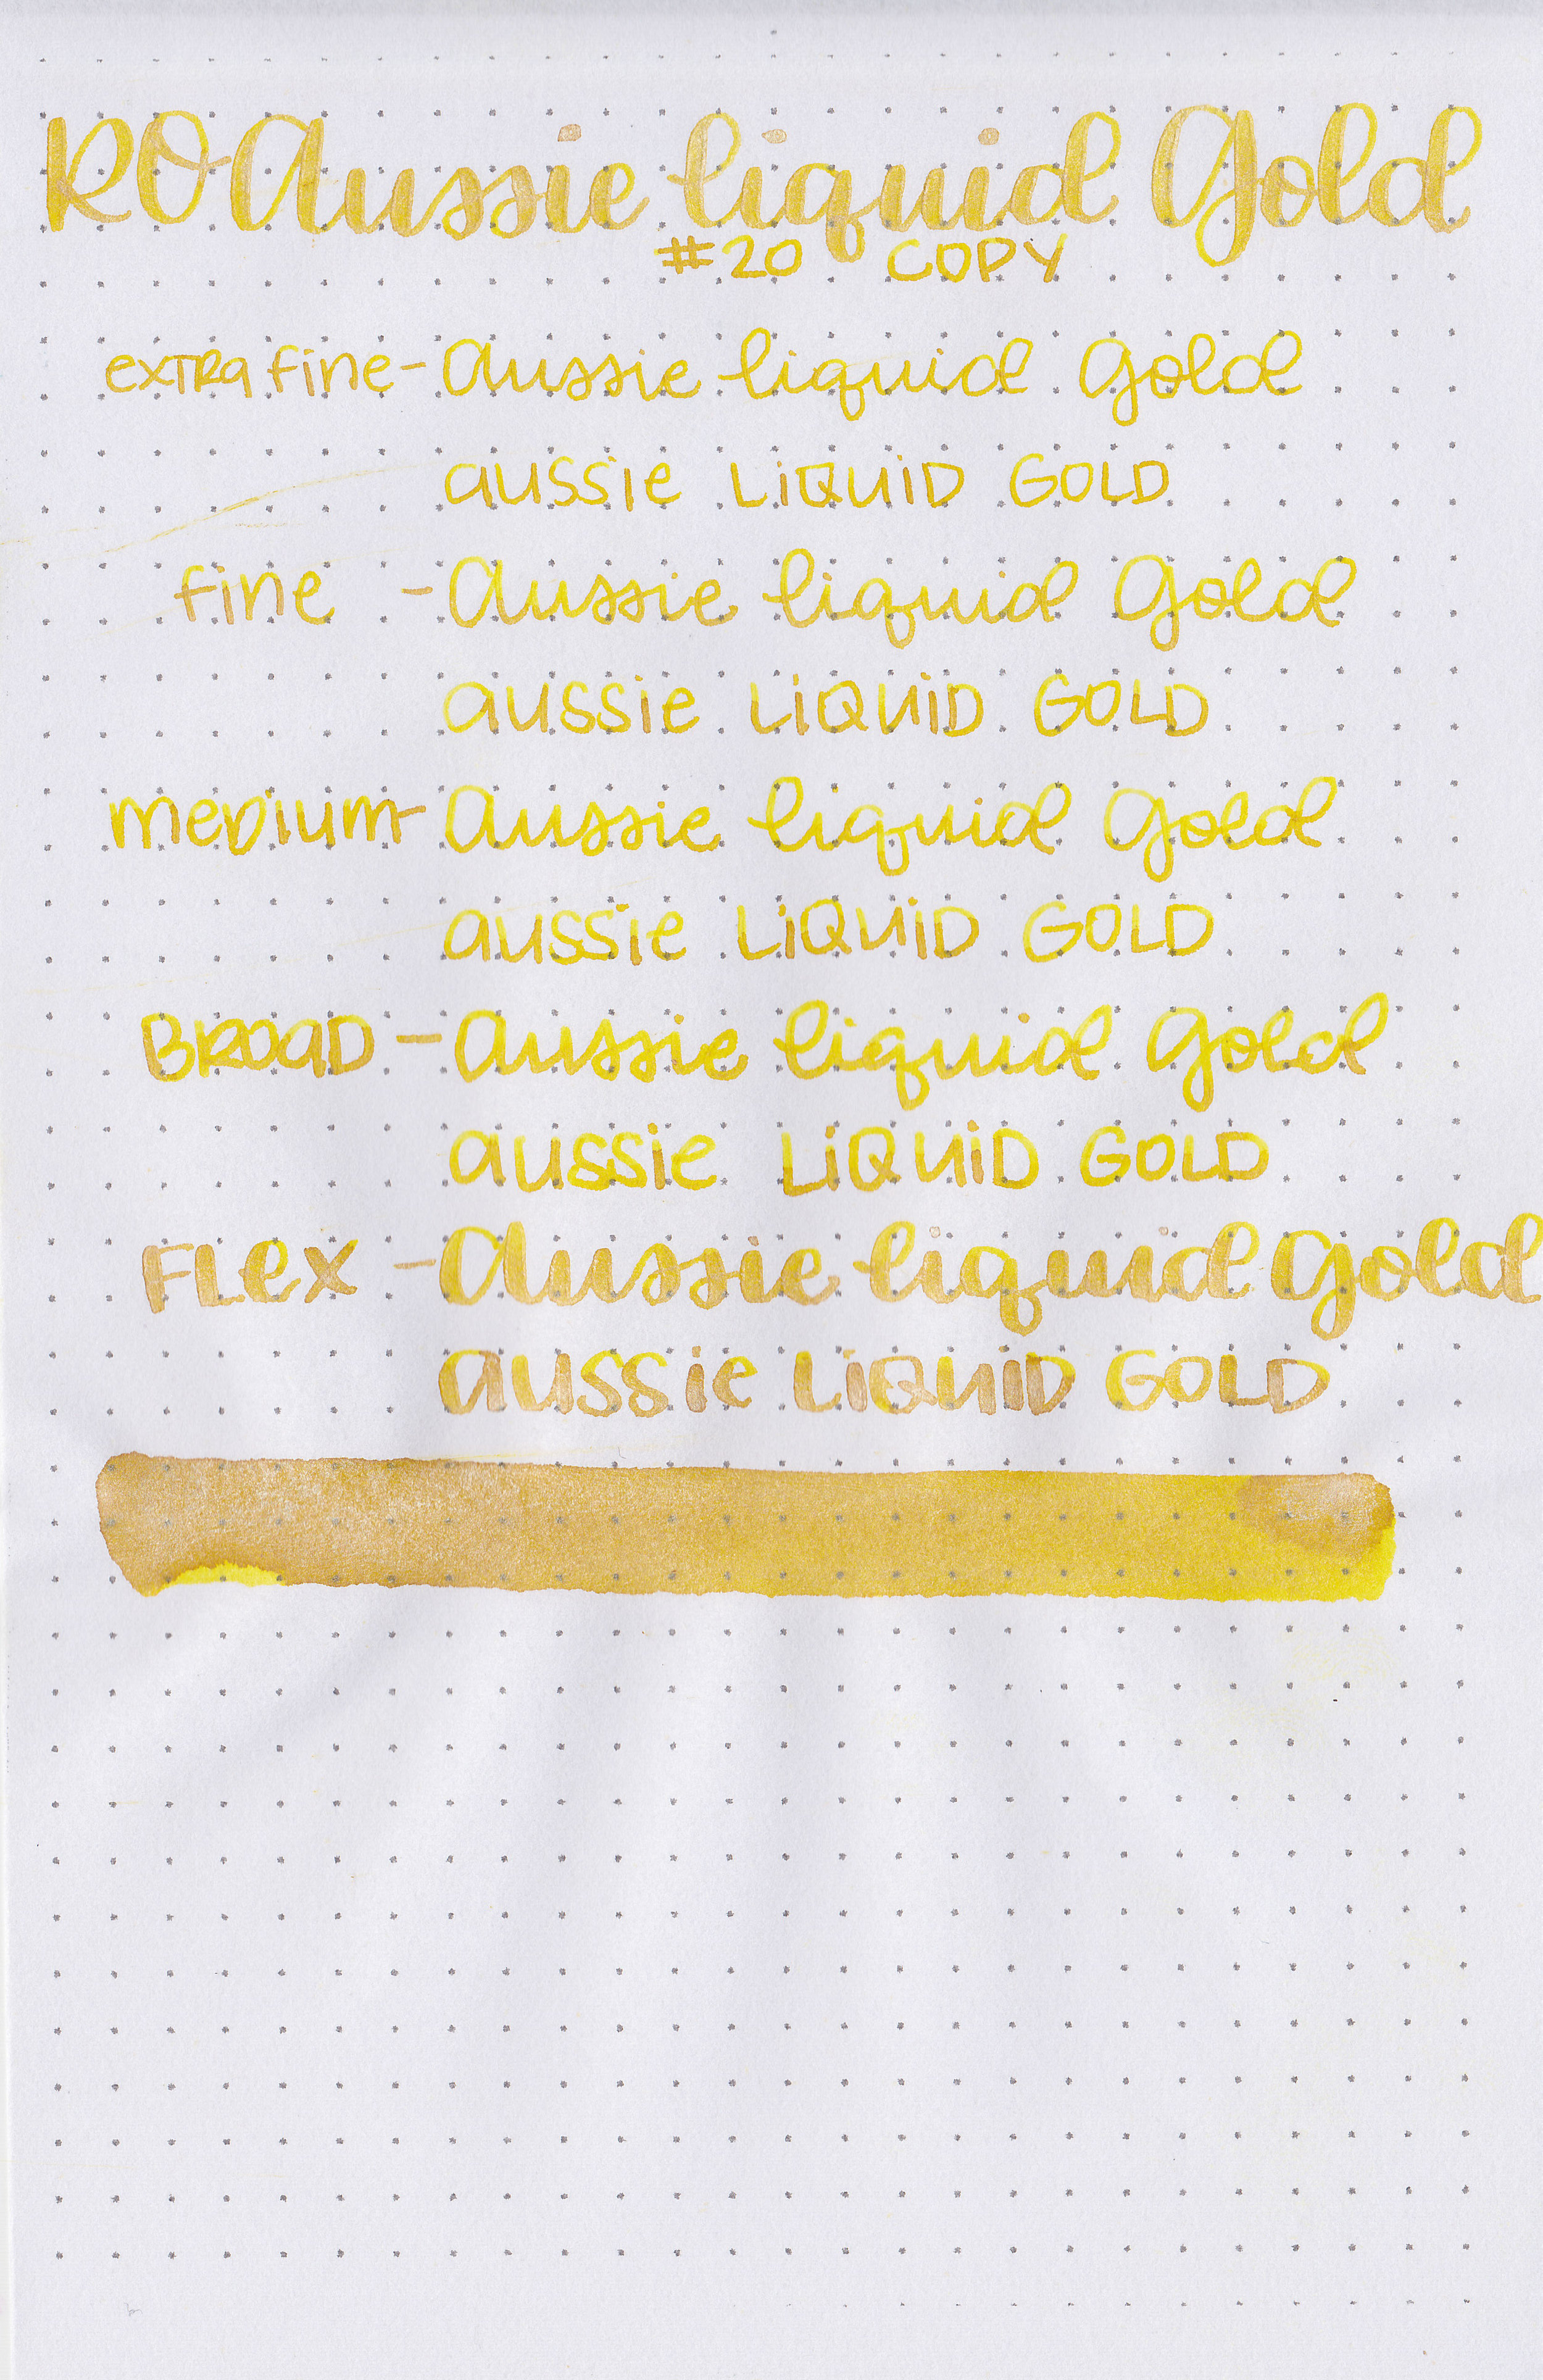 RO Aussie liquid Gold
#20 COPY
extra fine - Aussie liquid Gold
aussie LiQUiD GOLD
fine - Aussie liquid Gold
aussie LiQUiD GOLD
medium - Aussie liquid Gold
aussie LiQUiD GOLD
BROAD - Aussie liquid Gold
aussie LiQUiD GOLD
FLex - Aussie liquid Gold
aussie LiQUiD GOLD